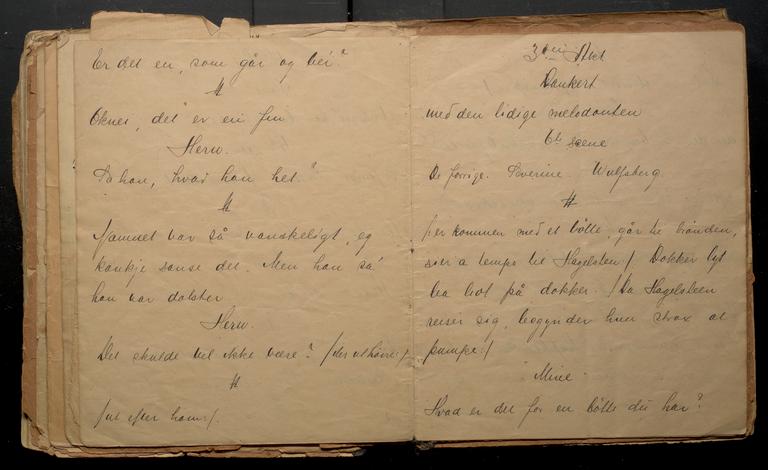 Er det en, som går og bér?
#
Oknei, det er en fin
Herw.
Sa han, hvad han het?
#
Namnet var så vanskeligt, eg
kankje sanse det. Men han sa'
han var dokter
Herw.
Det skulde vel ikke være? /der uthörer:/
#
/ut efter ham:/.
3die Akt
Dankert
med den lidige melodonten
6te scene
De forrige. Severine. Wulfsberg.
#
/:er kommen med et bötte, går til brönden,
sier a tempo til Hagelsteen:/ Dokker lyt
bea bot på dokker. /Da Hagelsteen
reiser sig, begynder hun strax at
pumpe:/
Mine
Hvad er det for en bötte du har?